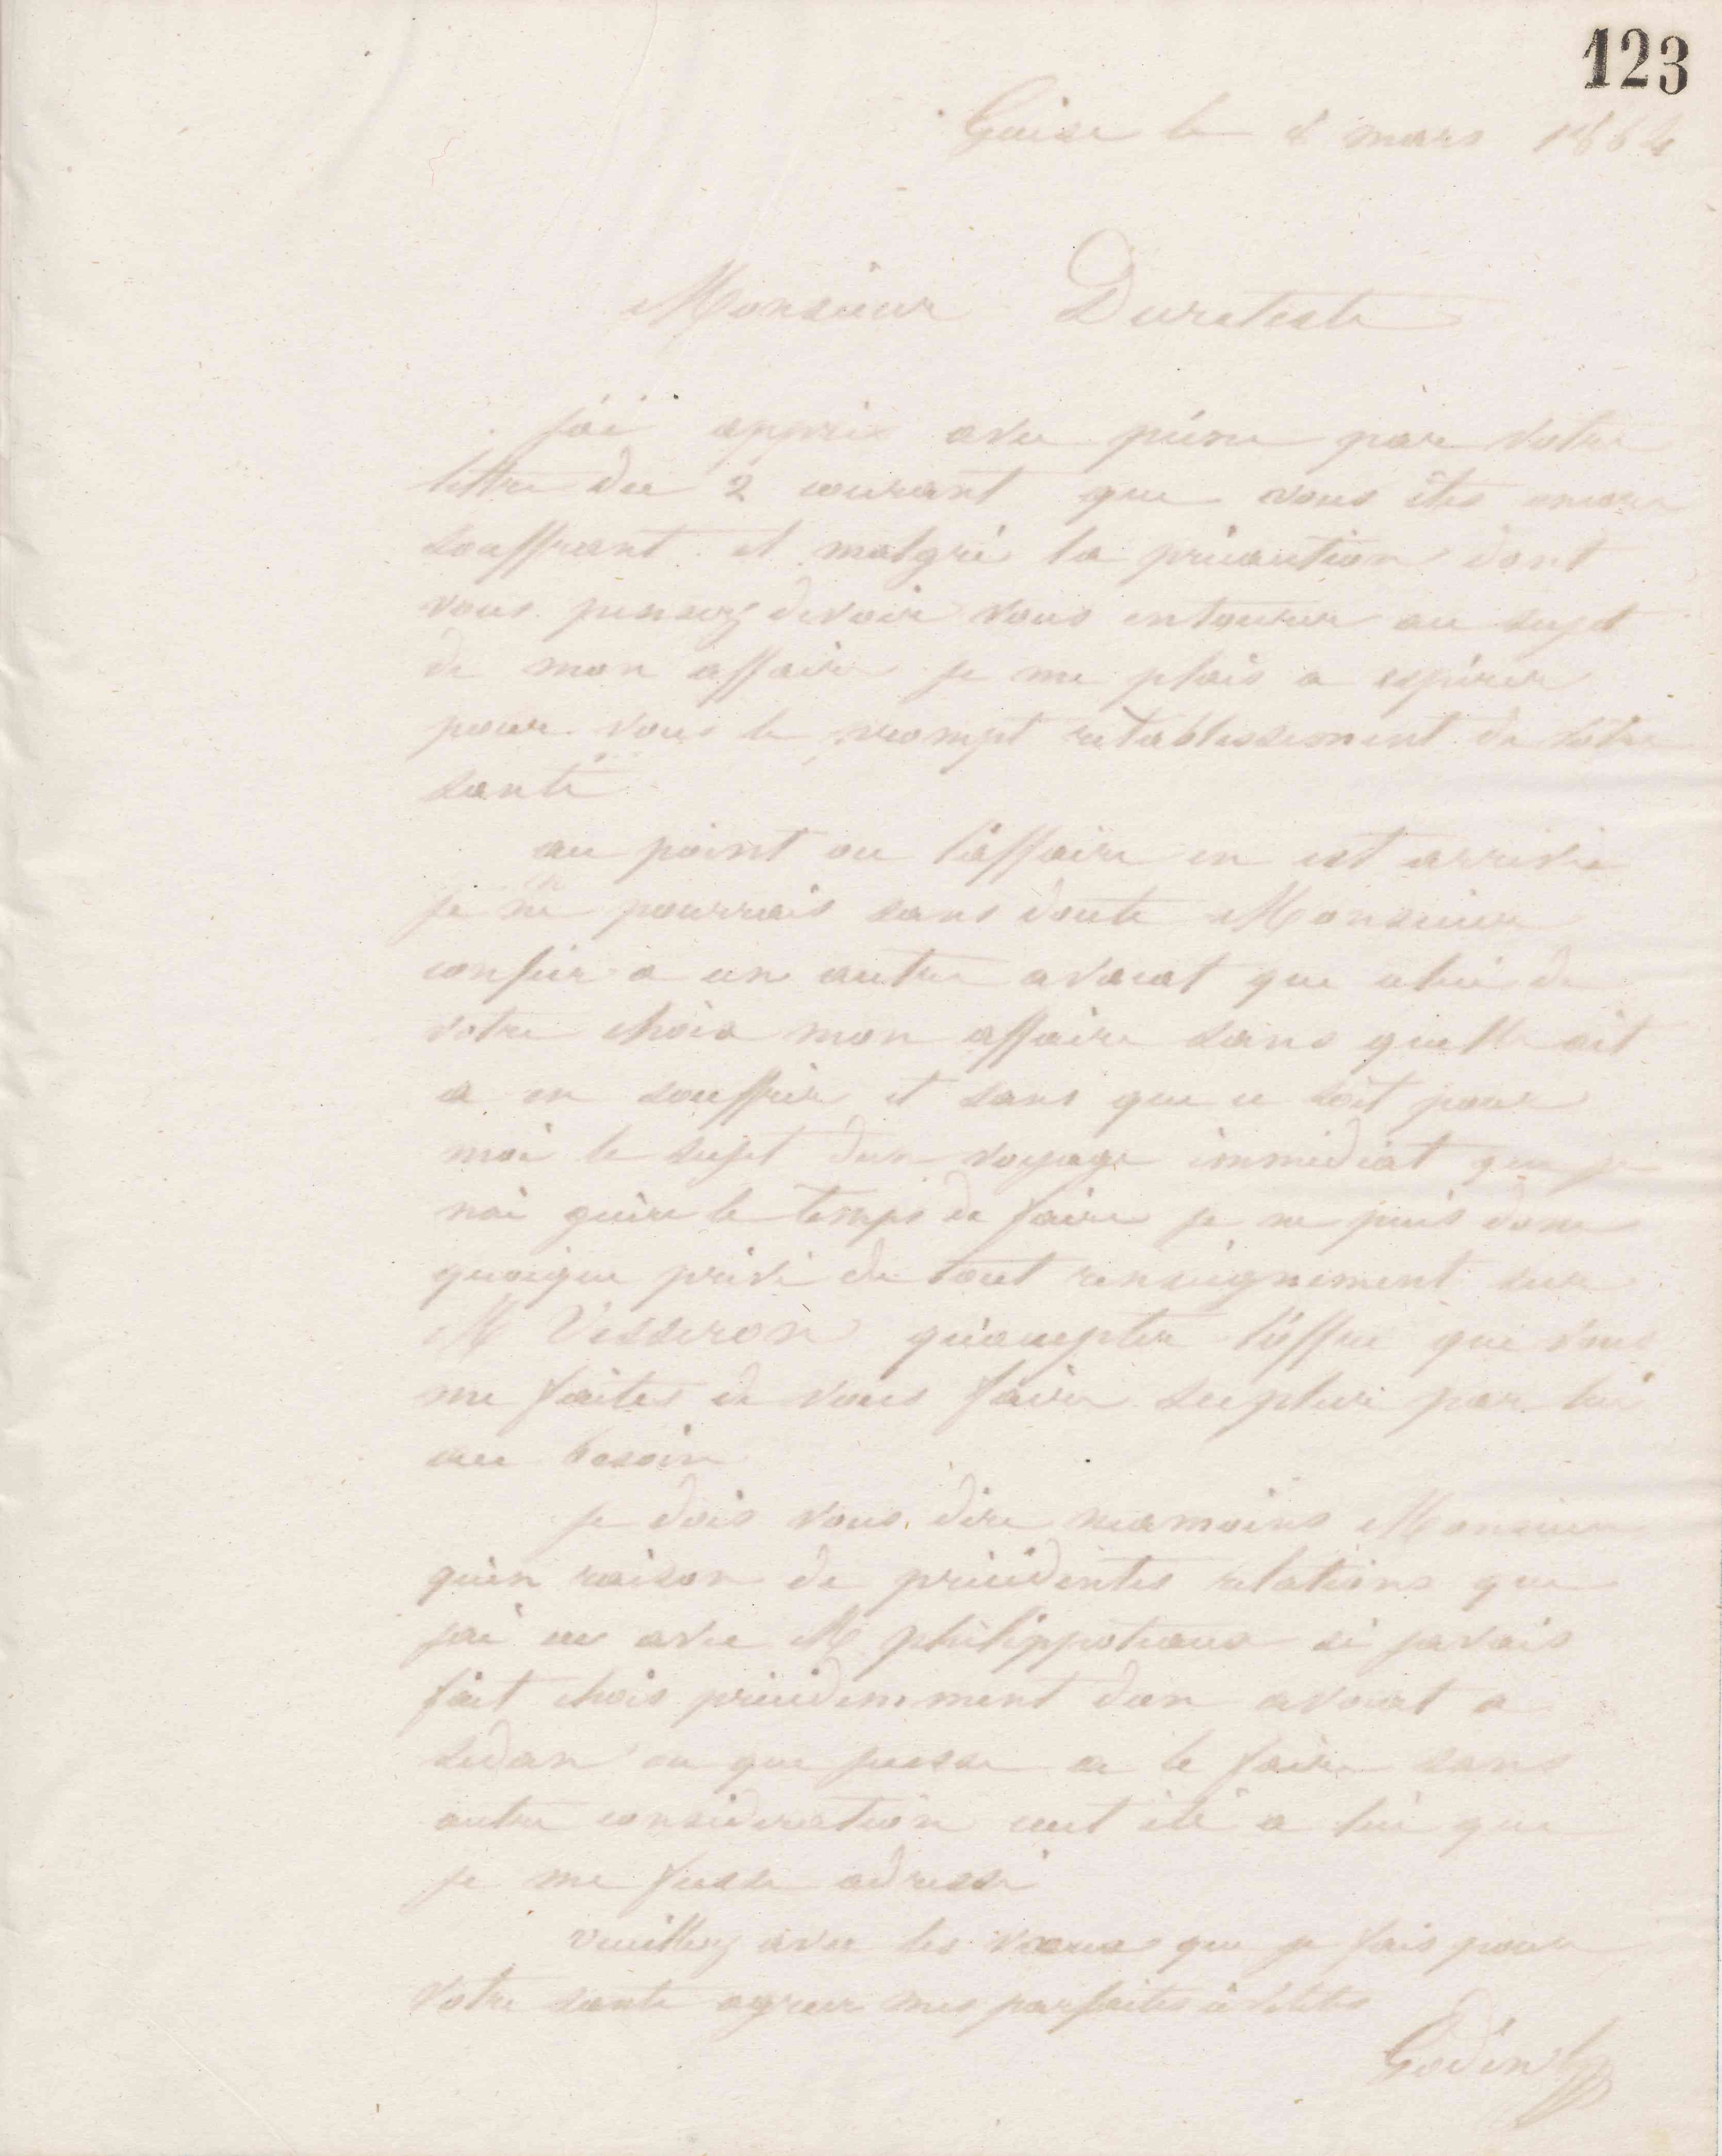 123
Guise le 8 mars 1864
Monsieur Dureteste
j'ai appris avec peine par votre
lettre du 2 courant que vous êtes encore
souffrant et malgré la précaution dont
vous pensez devoir vous entourer au sujet
de mon affaire je me plais a espérer
pour vous le prompt retablissement de votre
santé
au point ou l'affaire en est arrivée
je ne pourrais sans doute Monsieur
confier a un autre avocat que celui de
votre choix mon affaire sans quelle ait
a en souffrir et sans que ce soit pour
moi le sujet d'un voyage immédiat que je
n'ai guère le temps de faire je ne puis donc
quoique privé de tout renseignement sur
M Vesseron qu'accepter l'offre que vous
me faites de vous faire supleer par lui
au besoin
je dois vous dire neamoins Monsieur
qu'en raison de précédentes relations que
j'ai eu avec M philippoteaux si javais
fait choix précédemment d'un avocat a
sedan ou que jeusse a le faire sans
autre considération ceut été a lui que
je me fusse adressé
veuillez avec les voeux que je fais pour
votre santé agréer mes parfaites civilités
Godin